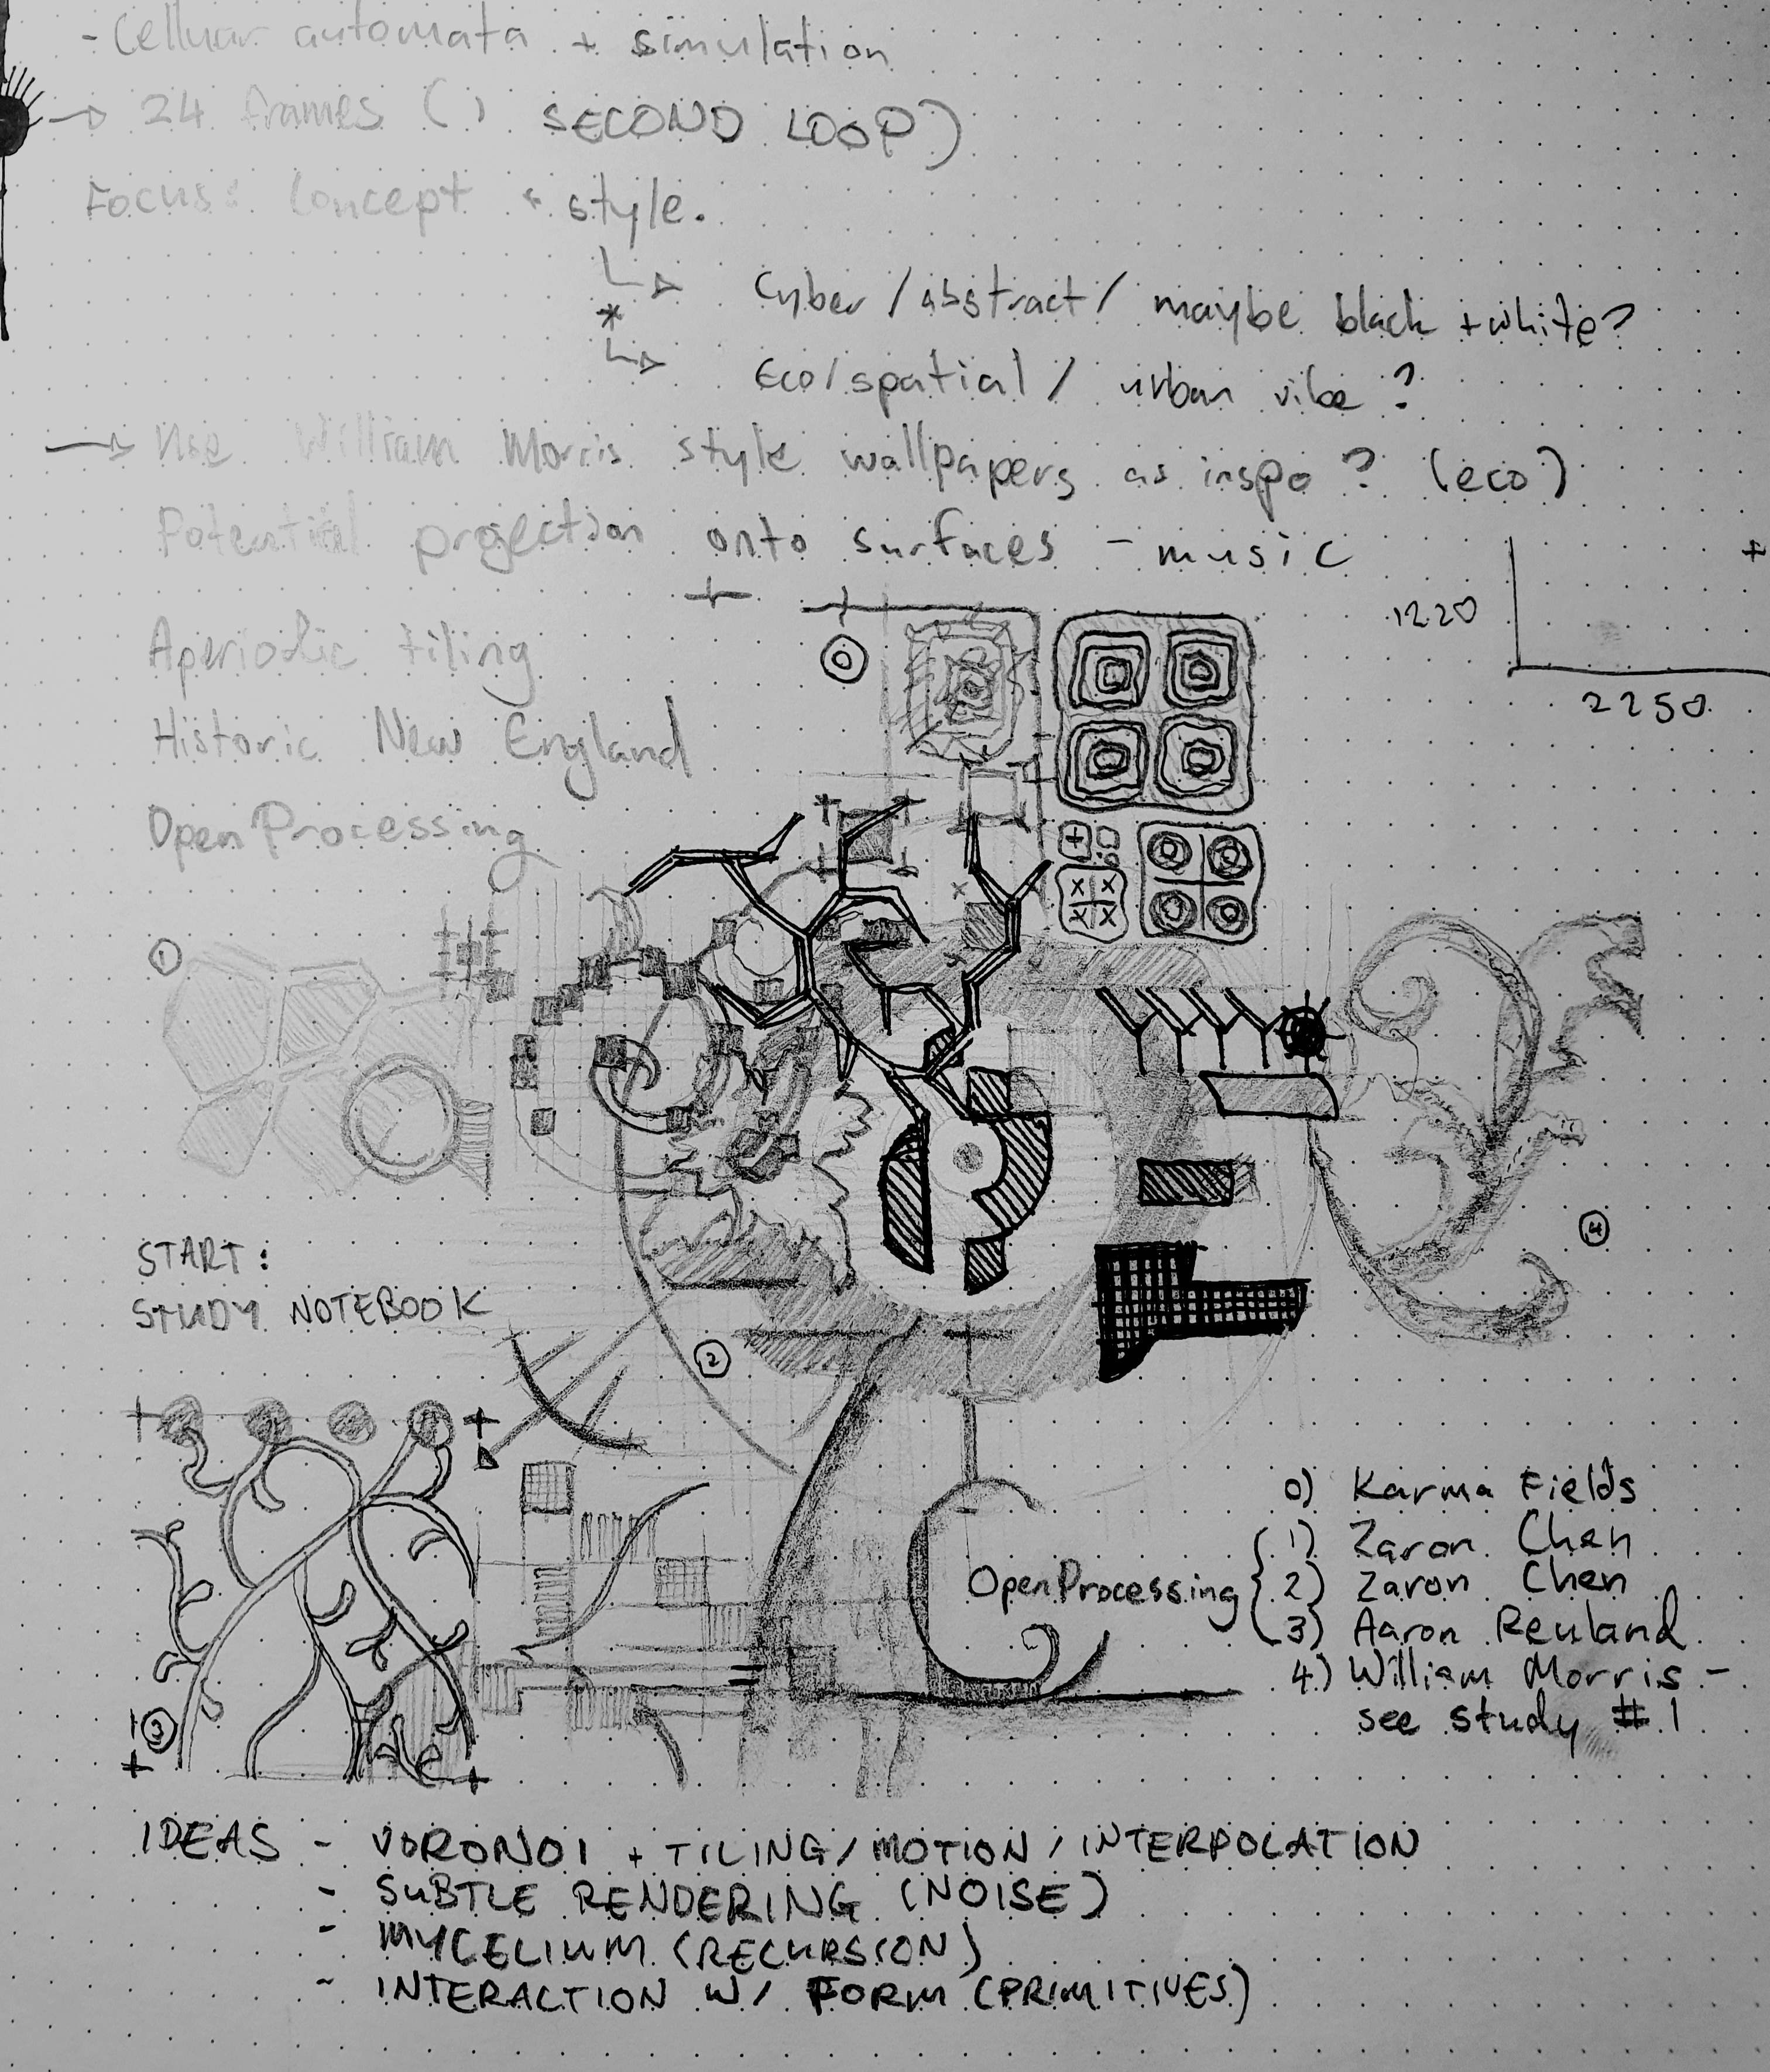 - Celluar automata + simulation
→ 24 frames (1 SECOND LOOP)
Focus: Concept + style.
Cyber / abstract / maybe black + white?
*
Eco / spatial / urban vibe?
→ Use William Morris style wallpapers as inspo? (eco)
Potential projection onto surfaces - music
1220
2250
Aperiodic tiling
Historic New England
OpenProcessing
0
1
START:
STUDY NOTEBOOK
2
4
3
OpenProcessing
0) Karma Fields
1) Zaron Chen
2) Zaron Chen
3) Aaron Reuland
4) William Morris -
see study #1
IDEAS - VORONOI + TILING / MOTION / INTERPOLATION
- SUBTLE RENDERING (NOISE)
- MYCELIUM (RECURSION)
- INTERACTION W/ FORM (PRIMITIVES)